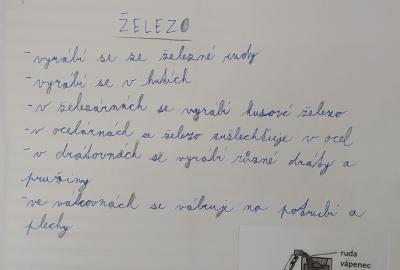 ŽELEZO
- vyrábí se ze železné rudy
- vyrábí se v hutích
- v železárnách se vyrábí kusové železo
- v ocelárnách se železo zušlechťuje v ocel
- v drátovnách se vyrábí různé dráty a
pružiny
- ve válcovnách se válcuje na potrubí a
plechy
ruda
vápenec